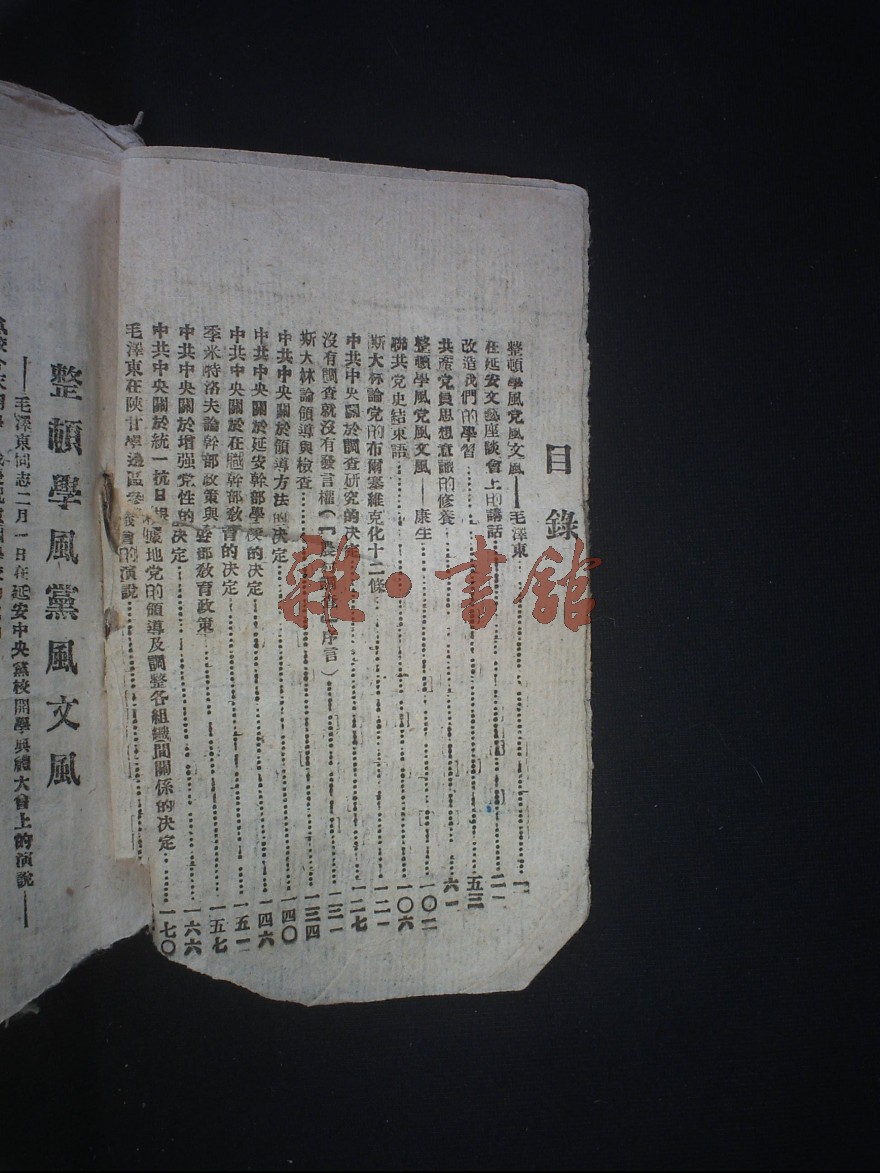 目錄
整頓學風党風文風——毛澤東……一
在延安文藝座談會上的講話……二一
改造我們的學習……五三
共產党員思想意識的修養……六一
整頓學風党風文風——康生……一〇二
聯共党史結束語……一〇六
斯大林論党的布爾塞維克化十二條……一二一
中共中央關於調查研究的决定……一二七
沒有調查就沒有發言權（「農村調查」序言）……一三一
斯大林論領導與檢查……一三四
中共中央關於領導方法的决定……一四〇
中共中央關於延安幹部學校的决定……一四六
中共中央關於在職幹部教育的决定……一五一
季米特洛夫論幹部政策與幹部教育政策……一五七
中共中央關於增强党性的决定……一六六
中共中央關於統一抗日根據地党的領導及調整各組織間關係的决定……一七〇
毛澤東在陝甘寧邊區參議會的演說……
整頓學風黨風文風
——毛澤東同志二月一日在延安中央黨校開學典禮大會上的演說——
雜·書館